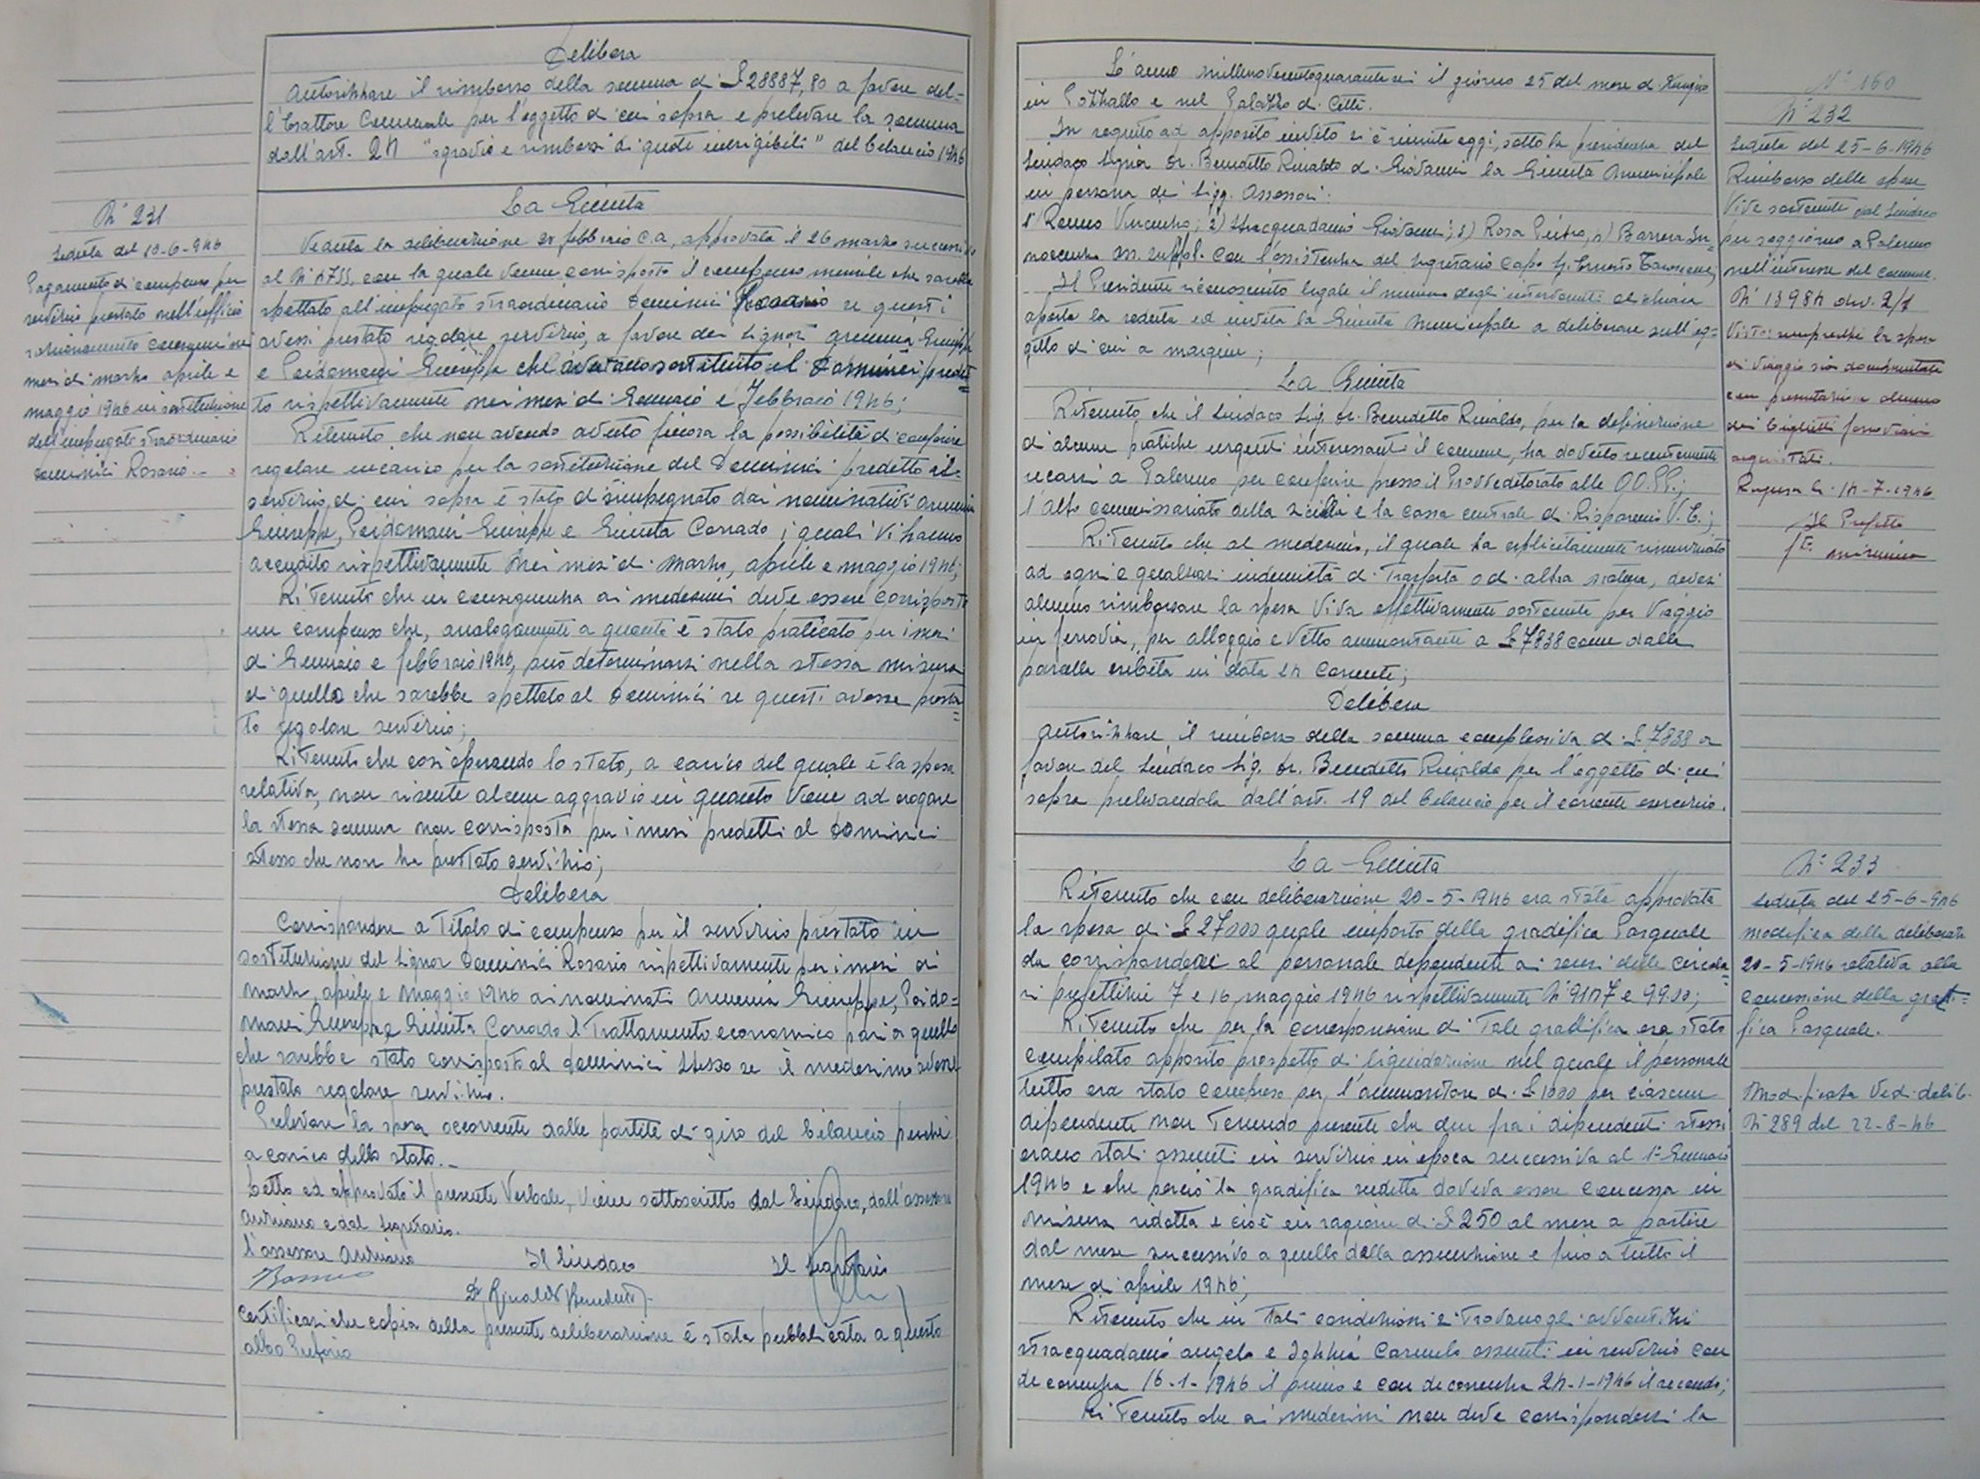 Delibera
Autorizzare il rimborso della somma di £ 28887,80 a favore del-
l'Esattore Comunale per l'oggetto di cui sopra e prelevare la somma
dall'art. 24 "sgravio e rimborsi di quote inesigibili" del bilancio 1946
N° 231
Seduta del 10-6-946
Pagamento di compenso per
servizio prestato nell'ufficio
razionamento consumi nei
mesi di marzo aprile e
maggio 1946 in sostituzione
dell'impiegato straordinario
Dominici Rosario.-
La Giunta
Veduta la deliberazione febbraio c.a., approvata il 26 marzo successivo
al N° 4755, con la quale venne corrisposto il compenso mensile che sarebbe
spettato all'impiegato straordinario Dominici Rosario se questi
avesse prestato regolare servizio, a favore dei Signori Armenia Giuseppe
e Poidomani Giuseppe che avevano sostituito il Dominici predet=
to rispettivamente nei mesi di Gennaio e Febbraio 1946;
Ritenuto che non avendo avuto finora la possibilità di conferire
regolare incarico per la sostituzione del Dominici predetto il
servizio di cui sopra è stato disimpegnato dai nominativi Armenia
Giuseppe, Poidomani Giuseppe e Giunta Corrado i quali vi hanno
accudito rispettivamente nei mesi di marzo, aprile e maggio 1946;
Ritenuto che in conseguenza ai medesimi deve essere corrisposto
un compenso che, analogamente a quanto è stato praticato per i mesi
di Gennaio e febbraio 1946, può determinarsi nella stessa misura
di quello che sarebbe spettato al Dominici se questi avesse presta=
to regolare servizio;
Ritenuto che così operando lo stato, a carico del quale è la spesa
relativa, non risente alcun aggravio in quanto viene ad erogare
la stessa somma non corrisposta per i mesi predetti al Dominici
stesso che non ha prestato servizio;
Delibera
Corrispondere a titolo di compenso per il servizio prestato in
sostituzione del Signor Dominici Rosario rispettivamente per i mesi di
marzo, aprile e maggio 1946 ai nominati Armenia Giuseppe, Poido=
mani Giuseppe e Giunta Corrado il trattamento economico pari a quello
che sarebbe stato corrisposto al Dominici stesso se il medesimo avesse
prestato regolare servizio.
Prelevare la spesa occorrente dalle partite di giro del bilancio perchè
a carico dello stato.-
Letto ed approvato il presente verbale, viene sottoscritto dal Sindaco, dall'assessore
anziano e dal segretario.
L'assessore anziano Il Sindaco Il Segretario
Dr Rinaldo Benedetto
Certificasi che copia della presente deliberazione è stata pubblicata a questo
albo Pretorio
L'anno millenovecentoquarantasei il giorno 25 del mese di Giugno
in Pozzallo e nel Palazzo di Città.
In seguito ad apposito invito si è riunita oggi, sotto la presidenza del
Sindaco Signor Dr. Benedetto Rinaldo di Giovanni la Giunta Municipale
in persona dei Sigg. Assessori:
1) Vincenzo; 2) Stracquadanio Giovanni; 3) Rosa Pietro, 4) Barrera In=
nocenzo ass. suppl. con l'assistenza del Segretario capo
Il Presidente riconosciuto legale il numero degli intervenuti dichiara
aperta la seduta ed invita la Giunta Municipale a deliberare sull'og-
getto di cui a margine;
La Giunta
Ritenuto che il Sindaco Sig. Dr. Benedetto Rinaldo, per la definizione
di alcune pratiche urgenti interessanti il comune, ha dovuto recentemente
recarsi a Palermo per conferire presso il Provveditorato alle OO.PP.;
l'alto commissariato della Sicilia e la cassa centrale di Risparmio V.E.;
Ritenuto che al medesimo, il quale ha esplicitamente rinunziato
ad ogni e qualsiasi indennità di trasferta o di altra natura, devesi
almeno rimborsare la spesa viva effettivamente sostenuta per viaggio
in ferrovia, per alloggio e vitto ammontante a £ 7838 come dalla
parcella esibita in data 24 corrente;
Delibera
Autorizzare il rimborso della somma complessiva di £ 7838 a
favore del Sindaco Sig. Dr. Benedetto Rinaldo per l'oggetto di cui
sopra prelevandola dall'art. 19 del bilancio per il corrente esercizio.
N° 160
N° 232
Seduta del 25-6-1946
Rimborso delle spese
vive sostenute dal Sindaco
per soggiorno a Palermo
nell'interesse del comune.
N° 13984 div. 2/1
Visto: sempreche la spesa
di viaggio sia documentata
con almeno
dei biglietti ferroviari
acquistati.
Ragusa li 14-7-1946
Il Prefetto
La Giunta
Ritenuto che con deliberazione 20-5-1946 era stata approvata
la spesa di £ 27000 quale importo della gratifica Pasquale
da corrispondersi al personale dipendente ai sensi delle circola=
ri prefettizie 7 e 16 maggio 1946 rispettivamente N° 9147 e 9900;
Ritenuto che per la corresponsione di tale gratifica era stato
compilato apposito prospetto di liquidazione nel quale il personale
tutto era stato compreso per l'ammontare di £ 1000 per ciascun
dipendente non tenendo presente che due fra i dipendenti stessi
erano stati assunti in servizio in epoca successiva al 1° Gennaio
1946 e che perciò la gratifica suddetta doveva essere concessa in
misura ridotta e cioè in ragione di £ 250 al mese a partire
dal mese successivo a quello della assunzione e fino a tutto il
mese di aprile 1946;
Ritenuto che in tali condizioni si trovano gli avventizi
Stracquadanio Angelo e Ighhia Carmelo assunti in servizio con
decorrenza 16-1-1946 il primo e con decorrenza 24-1-1946 il secondo;
Ritenuto che ai medesimi non deve corrispondersi la
N° 233
Seduta del 25-6-946
Modifica della delibera
20-5-1946 relativa alla
concessione della grati=
fica Pasquale.
Modificata vedi delib.
N° 289 del 22-8-46